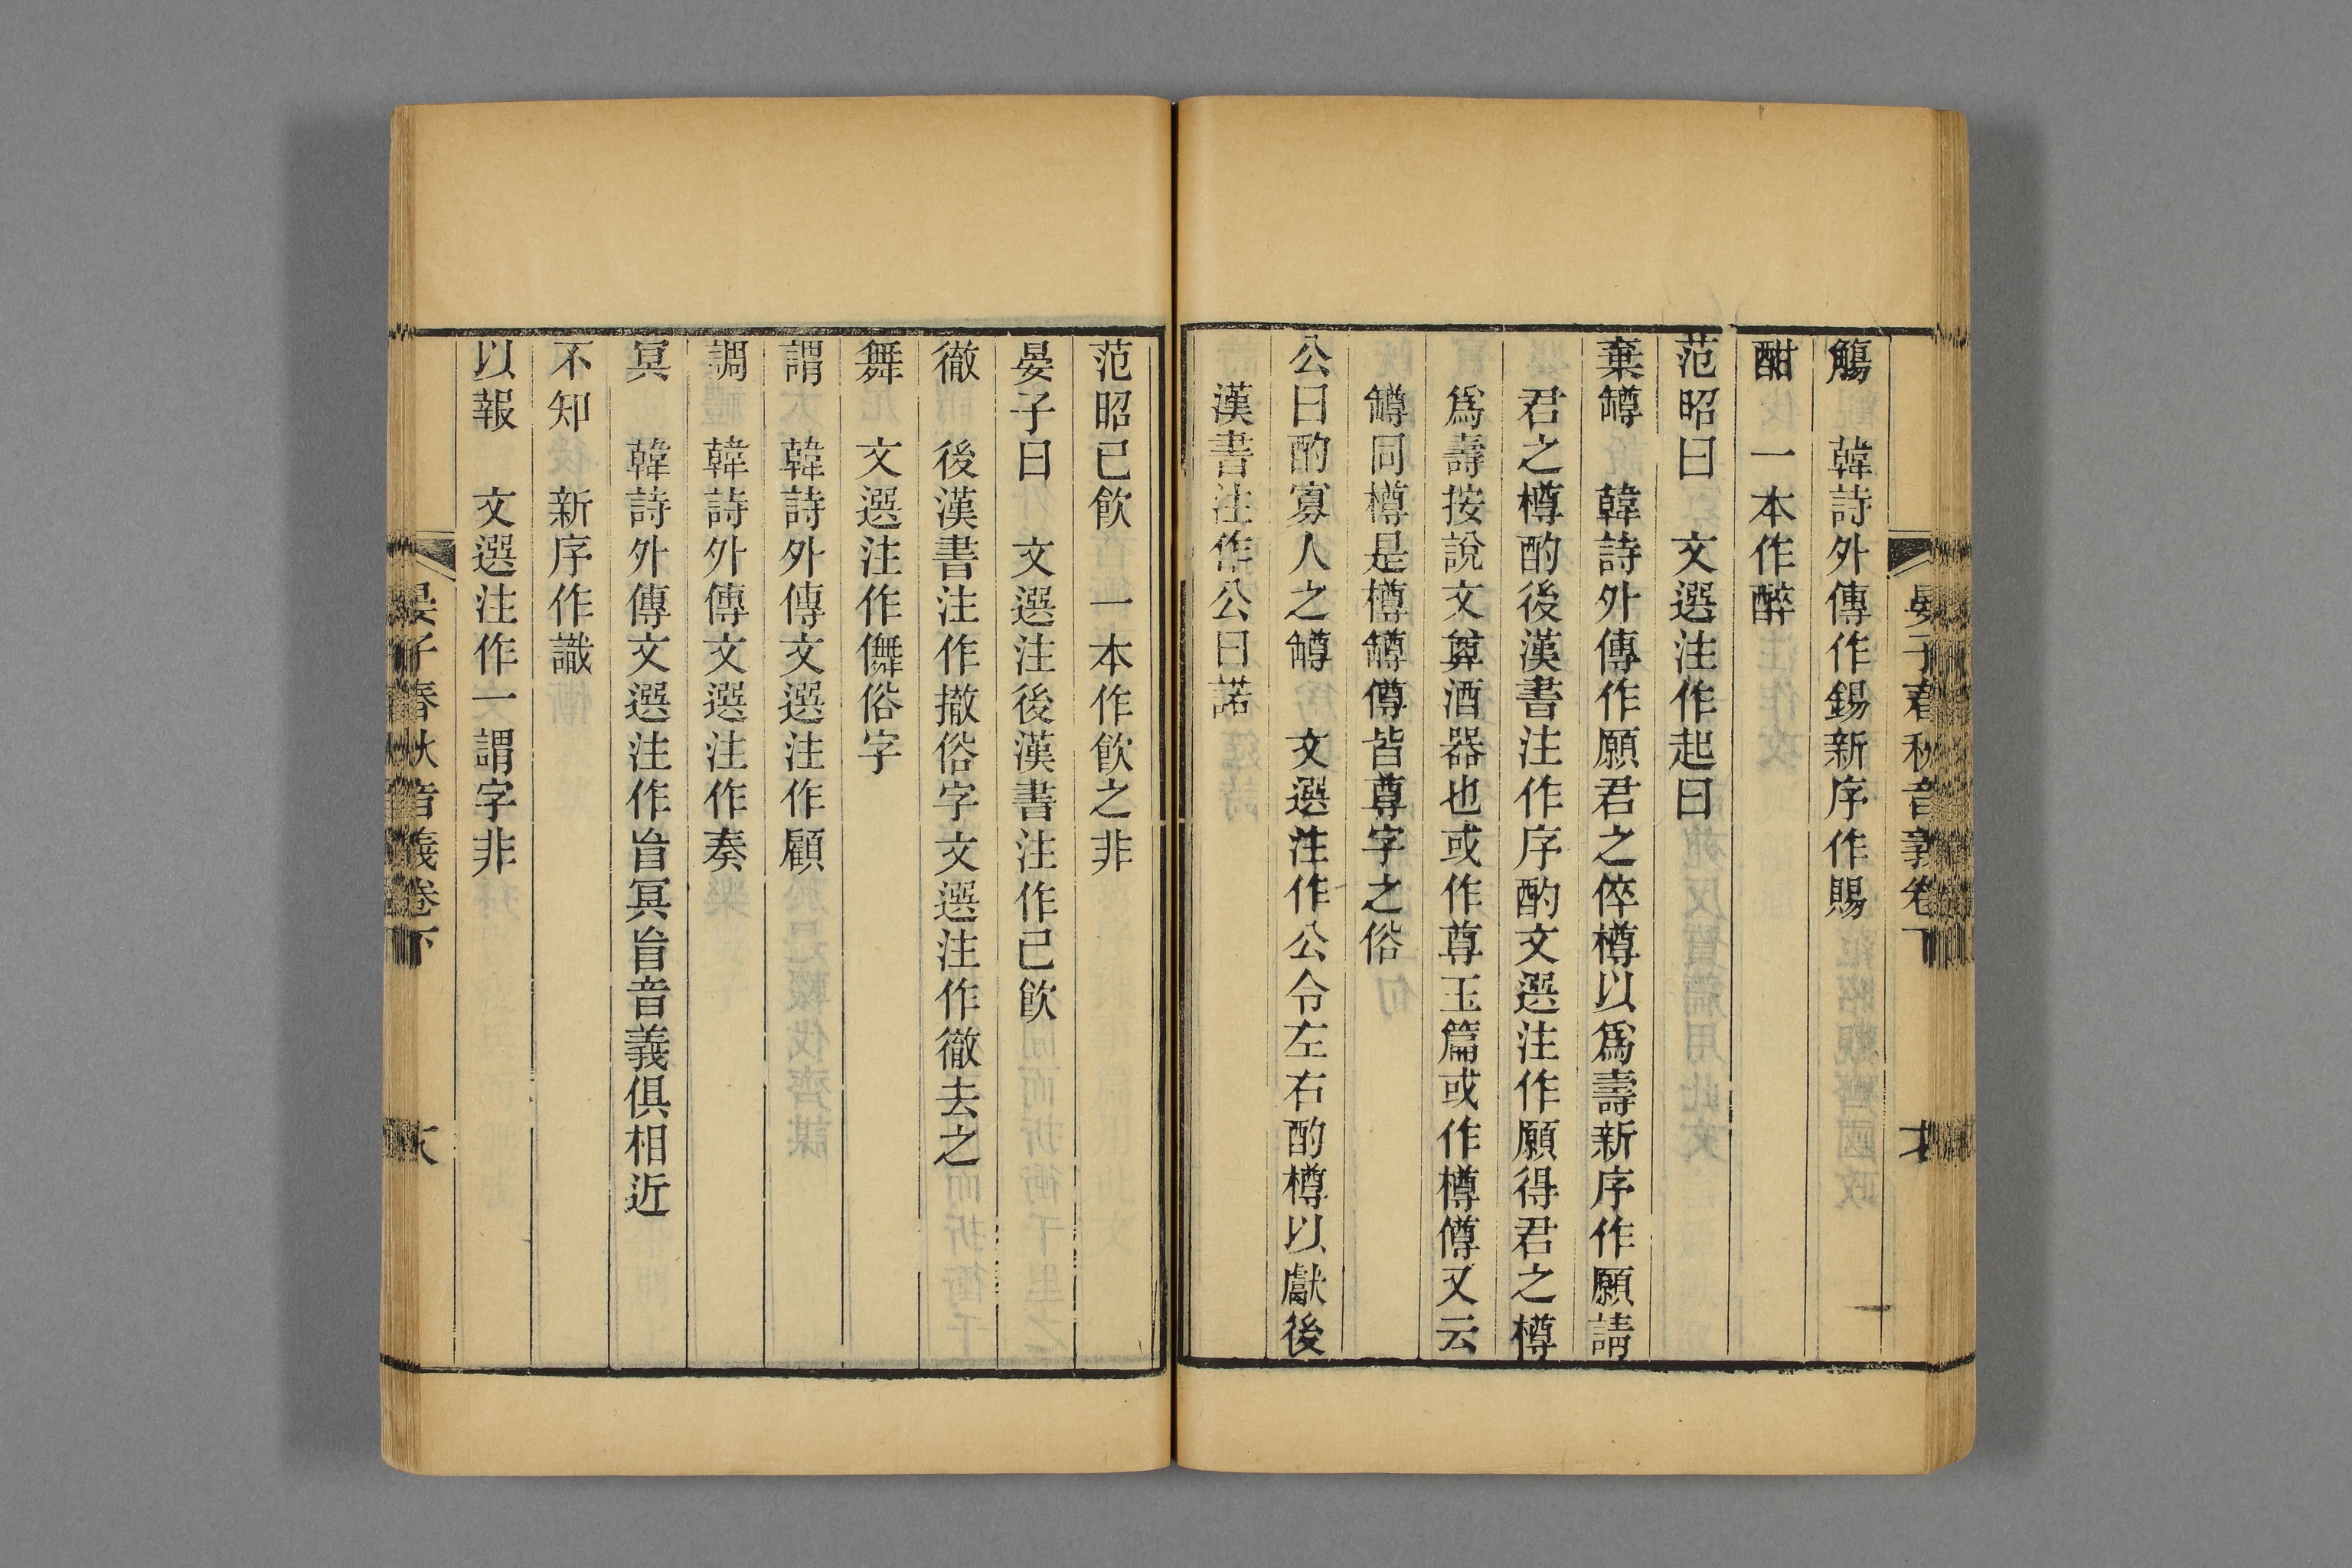 晏子春秋音義卷下
觴　韓詩外傳作錫新序作賜
酣　一本作醉
范昭曰　文選注作起曰
棄罇　韓詩外傳作願君之倅樽以爲壽新序作願請
君之樽酌後漢書注作序酌文選注作願得君之樽
爲壽按說文算酒器也或作尊玉篇或作樽僔又云
罇同樽是樽罇僔皆尊字之俗
公曰酌寡人之罇　文選注作公令左右酌樽以獻後
漢書注作公曰諾
范昭已飲　一本作飲之非
晏子曰　文選注後漢書注作已飲
徹　後漢書注作撤俗字文選注作徹去之
舞　文選注作儛俗字
謂　韓詩外傳文選注作顧
調　韓詩外傳文選注作奏
冥　韓詩外傳文選注作盲冥盲音義俱相近
不知　新序作識
以報　文選注作一謂字非
晏子春秋音義卷下